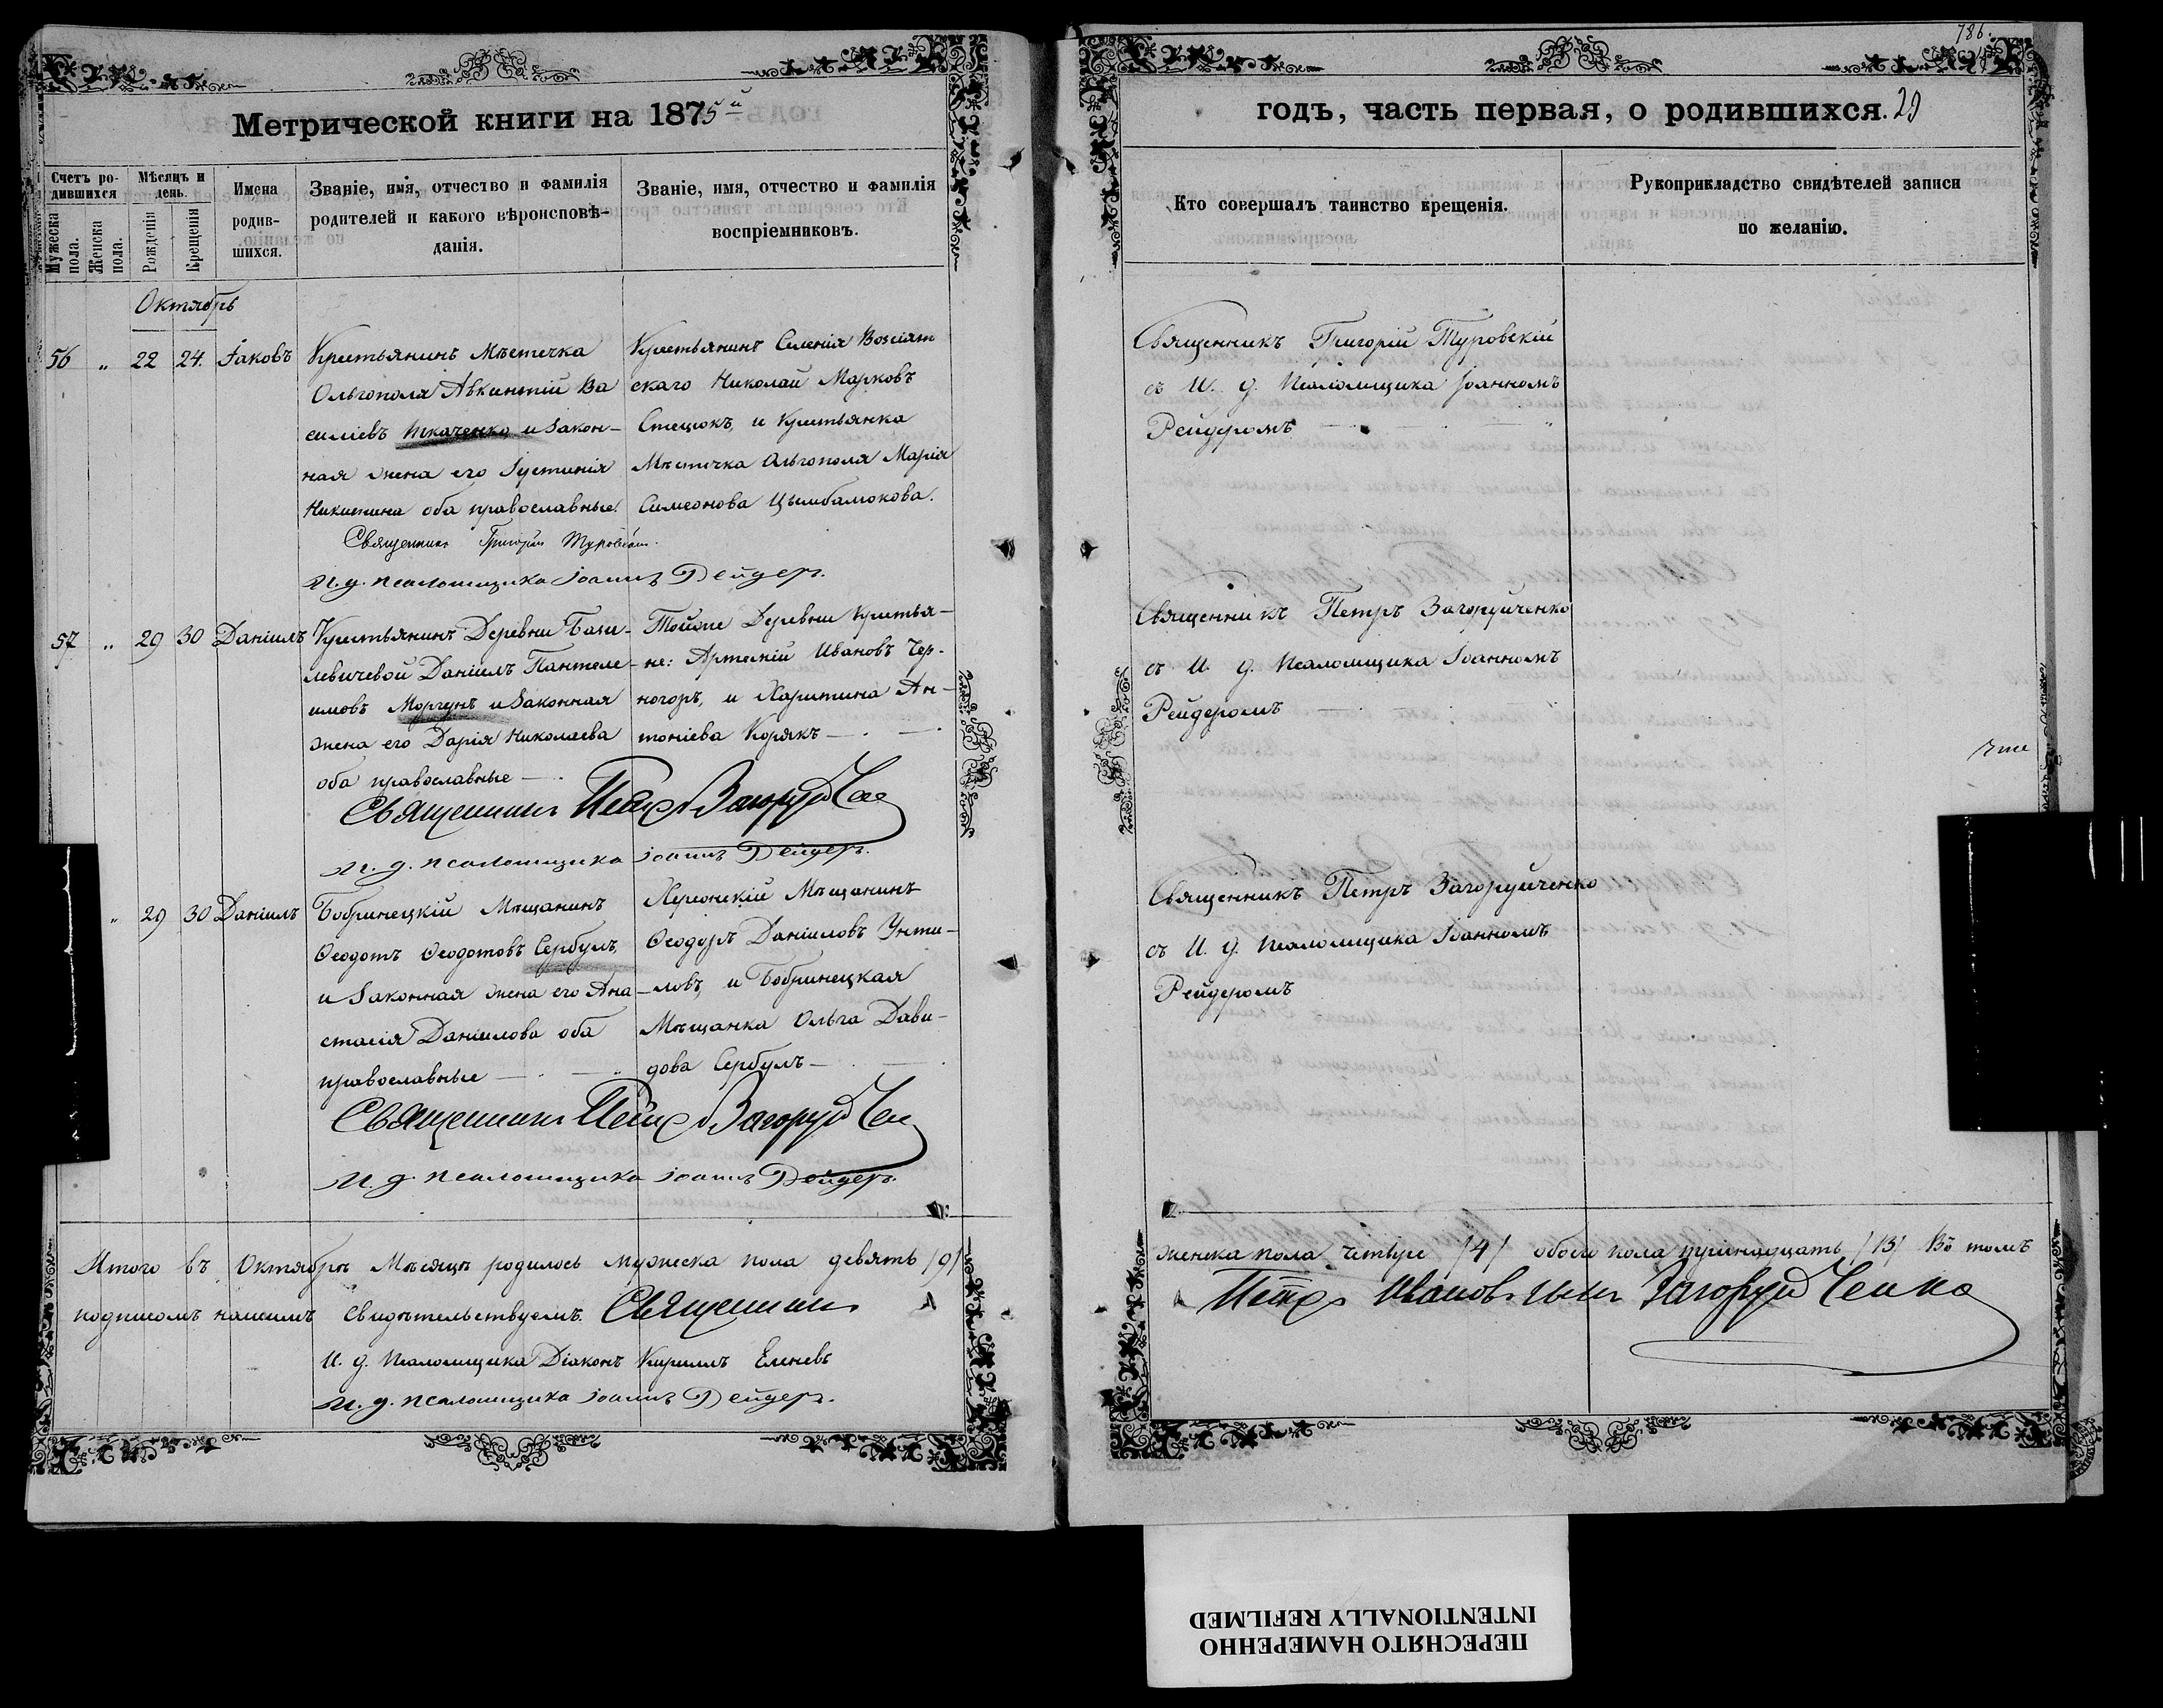 Метрической книги на 1875й
Счетъ ро-
дившихся
Мѣсяцъ и
день.
Мужеска
пола.
Женска
пола.
Рожденія
Крещенія
Имена
родив-
шихся.
Званіе, имя, отчество и фамилія
родителей и какого вѣроисповѣ-
данія.
Званіе, имя, отчество и фамилія
воспріемниковъ.
Октябрь
56 „ 22 24. Іаковъ
Крестьянинъ Мѣстечка
Ольгополя Авкинтій Ва
силіевъ Ткаченко и закон-
ная жена его Іустинія
Никитина оба православные.
Крестьянинъ Селенія
скаго Николай Марковъ
Стецюкъ, и Крестьянка
Мѣстечка Ольгополя Марія
Симеонова Цымбалюкова.
Священникъ Григорій Туровскій
И. д. псаломщика Іоаннъ Рейдеръ.
57 „ 29 30 Даніилъ
Крестьянинъ Деревни Бази-
левичевой Даніилъ Пантеле-
имовъ Моргунъ и законная
жена его Дарія Николаева
оба православные
Тойже Деревни Крестья-
не: Артемій Ивановъ Чер-
ногоръ, и Харитина Ан-
тоніева Корякъ
Священникъ Петръ Загоруйченко
И. д. псаломщика Іоаннъ Рейдеръ.
„ 29 30 Даніилъ
Бобринецкій Мѣщанинъ
Ѳеодотъ Ѳеодотовъ Сербулъ,
и законная жена его Ана-
стасія Даніилова оба
православные
Херсонскій Мѣщанинъ
Ѳеодоръ Даніиловъ Унти-
ловъ, и Бобринецкая
Мѣщанка Ольга Дави-
дова Сербулъ
Священникъ Петръ Загоруйченко
И. д. псаломщика Іоаннъ Рейдеръ.
Итого въ Октябрѣ Мѣсяцѣ родилось мужеска пола девять /9/
подписомъ нашимъ свидѣтельствуемъ. Священникъ
И. д. Псаломщика Діаконъ Кириллъ Еленевъ
И. д. псаломщика Іоаннъ Рейдеръ.
786.
годъ, часть первая, о родившихся. 29
Кто совершалъ таинство крещенія.
Рукоприкладство свидѣтелей записи
по желанію.
Священникъ Григорій Туровскій
съ И. д. Псаломщика Іоанномъ
Рейдеромъ
Священникъ Петръ Загоруйченко
съ И. д. Псаломщика Іоанномъ
Рейдеромъ
Священникъ Петръ Загоруйченко
съ И. д. Псаломщика Іоанномъ
Рейдеромъ
женска пола четыре /4/ обоего пола тринадцать /13/ Въ томъ
Петръ Ивановъ сынъ Загоруйченко
ПЕРЕСНЯТО НАМЕРЕННО
INTENTIONALLY REFILMED